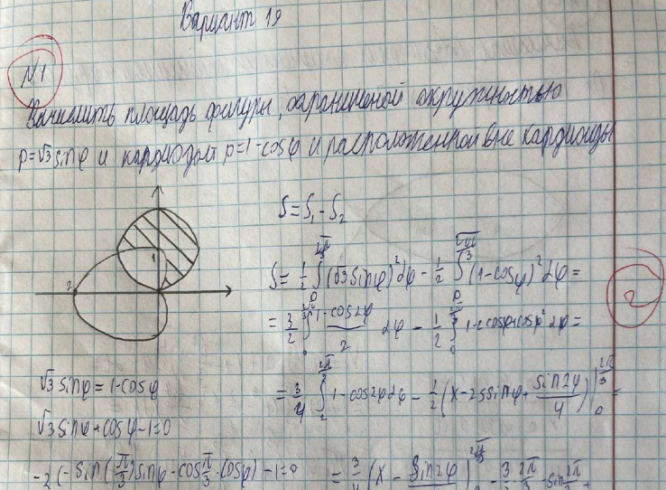 Вариант 19
N1
Вычислить площадь фигуры, ограниченой окружностью
ρ=√3 sinφ и кардиодой ρ=1-cosφ и расположенной вне кардиоды
S=S₁-S₂
S= 1/2 ∫₀^(2π/3) (√3 sinφ)² dφ - 1/2 ∫₀^(2π/3) (1-cosφ)² dφ =
2
= 3/2 ∫ (1-cos2φ)/2 dφ - 1/2 ∫ 1-2cosφ+cosφ² dφ =
1
2
√3 sinφ = 1-cosφ
= 3/4 ∫ 1-cos2φdφ - 1/2 (x-2sinφ+ sin2φ/4)|₀^(2π/3) =
√3 sinφ+cosφ-1=0
-2(-sin(π/3)sinφ-cos π/3 ·cosφ)-1=0
= 3/4 (x - sin2φ